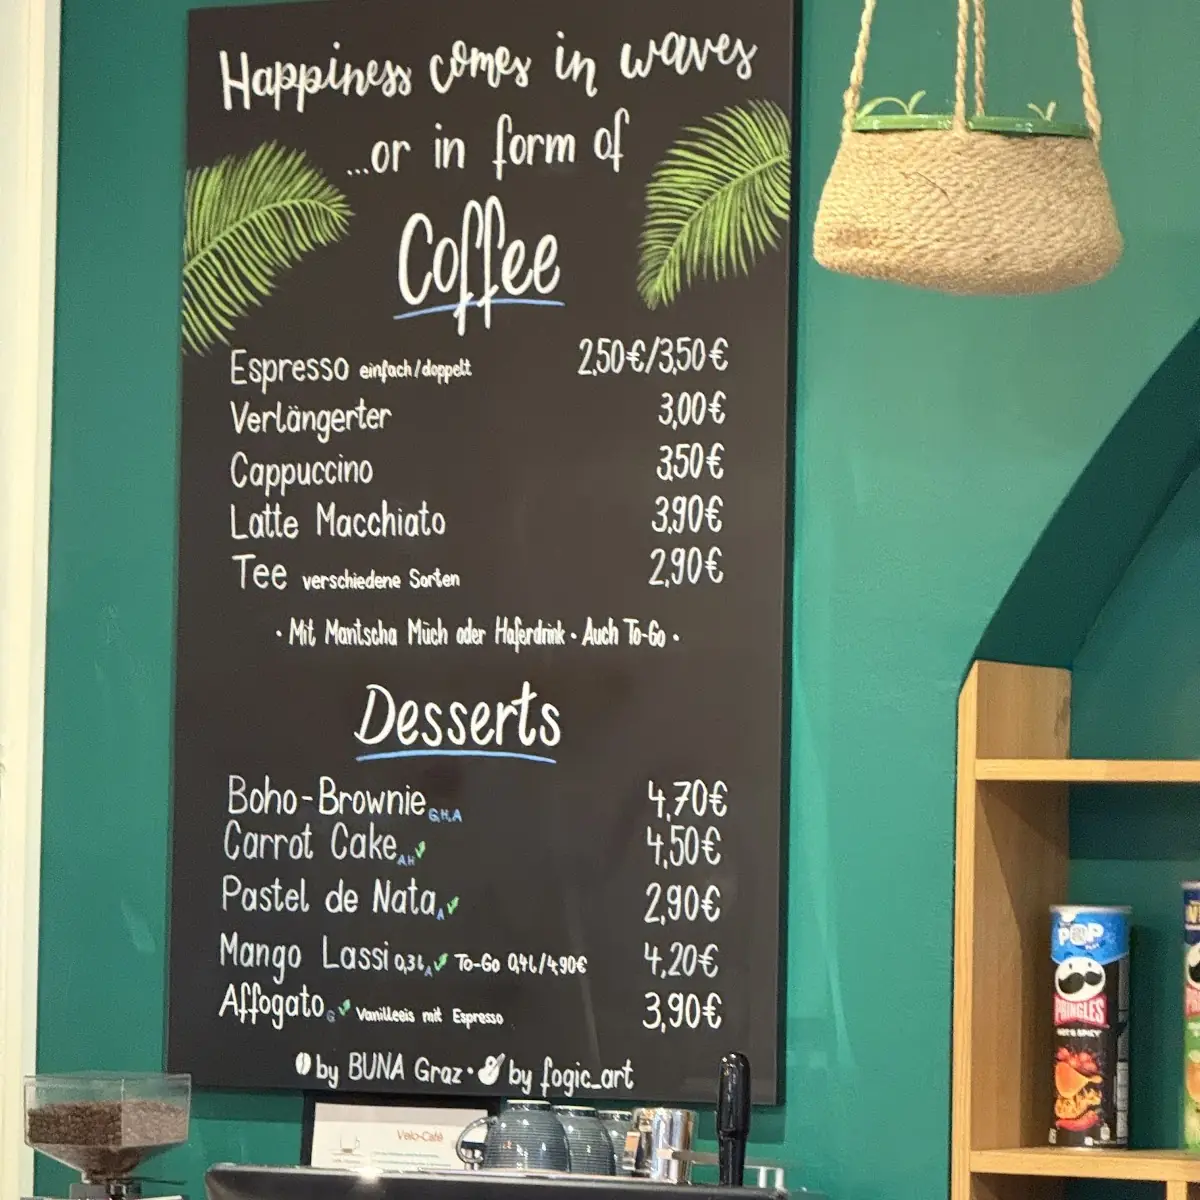 Happiness comes in waves
...or in form of
Coffee
Espresso einfach/doppelt 2,50€/3,50€
Verlängerter 3,00€
Cappuccino 3,50€
Latte Macchiato 3,90€
Tee verschiedene Sorten 2,90€
· Mit Mantscha Müch oder Haferdrink · Auch To-Go ·
Desserts
Boho-Brownie G,H,A 4,70€
Carrot Cake A,H 4,50€
Pastel de Nata A 2,90€
Mango Lassi 0,3L A To-Go 0,4L/4,90€ 4,20€
Affogato G Vanilleeis mit Espresso 3,90€
by BUNA Graz · by fogic_art
Velo-Café
POP
PRINGLES
HOT & SPICY